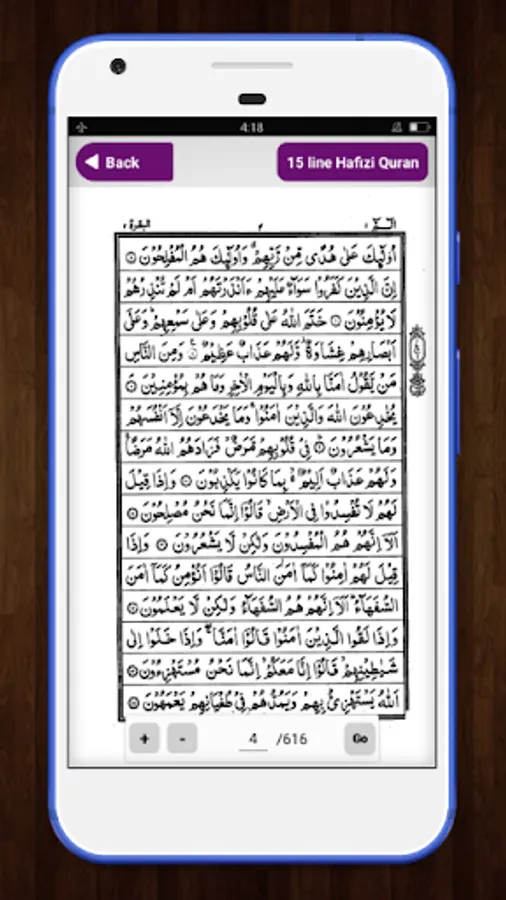 4:18
Back
15 line Hafizi Quran
الٓمّٓ ۱ ۲ البقرة ۲
اُولٰٓئِكَ عَلٰى هُدًى مِّنْ رَّبِّهِمْ ۙ وَاُولٰٓئِكَ هُمُ الْمُفْلِحُوْنَ ۝
اِنَّ الَّذِيْنَ كَفَرُوْا سَوَآءٌ عَلَيْهِمْ ءَاَنْذَرْتَهُمْ اَمْ لَمْ تُنْذِرْهُمْ
لَا يُؤْمِنُوْنَ ۝ خَتَمَ اللّٰهُ عَلٰى قُلُوْبِهِمْ وَعَلٰى سَمْعِهِمْ ؕ وَعَلٰٓى
اَبْصَارِهِمْ غِشَاوَةٌ ۫ وَّلَهُمْ عَذَابٌ عَظِيْمٌ ۝ وَمِنَ النَّاسِ
مَنْ يَّقُوْلُ اٰمَنَّا بِاللّٰهِ وَبِالْيَوْمِ الْاٰخِرِ وَمَا هُمْ بِمُؤْمِنِيْنَ ۝
يُخٰدِعُوْنَ اللّٰهَ وَالَّذِيْنَ اٰمَنُوْا ۚ وَمَا يَخْدَعُوْنَ اِلَّآ اَنْفُسَهُمْ
وَمَا يَشْعُرُوْنَ ۝ فِيْ قُلُوْبِهِمْ مَّرَضٌ ۙ فَزَادَهُمُ اللّٰهُ مَرَضًا ۚ
وَلَهُمْ عَذَابٌ اَلِيْمٌ ۢ ۙ بِمَا كَانُوْا يَكْذِبُوْنَ ۝ وَاِذَا قِيْلَ
لَهُمْ لَا تُفْسِدُوْا فِى الْاَرْضِ ۙ قَالُوْٓا اِنَّمَا نَحْنُ مُصْلِحُوْنَ ۝
اَلَآ اِنَّهُمْ هُمُ الْمُفْسِدُوْنَ وَلٰكِنْ لَّا يَشْعُرُوْنَ ۝ وَاِذَا
قِيْلَ لَهُمْ اٰمِنُوْا كَمَآ اٰمَنَ النَّاسُ قَالُوْٓا اَنُؤْمِنُ كَمَآ اٰمَنَ
السُّفَهَآءُ ؕ اَلَآ اِنَّهُمْ هُمُ السُّفَهَآءُ وَلٰكِنْ لَّا يَعْلَمُوْنَ ۝
وَاِذَا لَقُوا الَّذِيْنَ اٰمَنُوْا قَالُوْٓا اٰمَنَّا ۖۚ وَاِذَا خَلَوْا اِلٰى
شَيٰطِيْنِهِمْ ۙ قَالُوْٓا اِنَّا مَعَكُمْ ۙ اِنَّمَا نَحْنُ مُسْتَهْزِءُوْنَ ۝
اَللّٰهُ يَسْتَهْزِئُ بِهِمْ وَيَمُدُّهُمْ فِيْ طُغْيَانِهِمْ يَعْمَهُوْنَ ۝
+ - 4 /616 Go